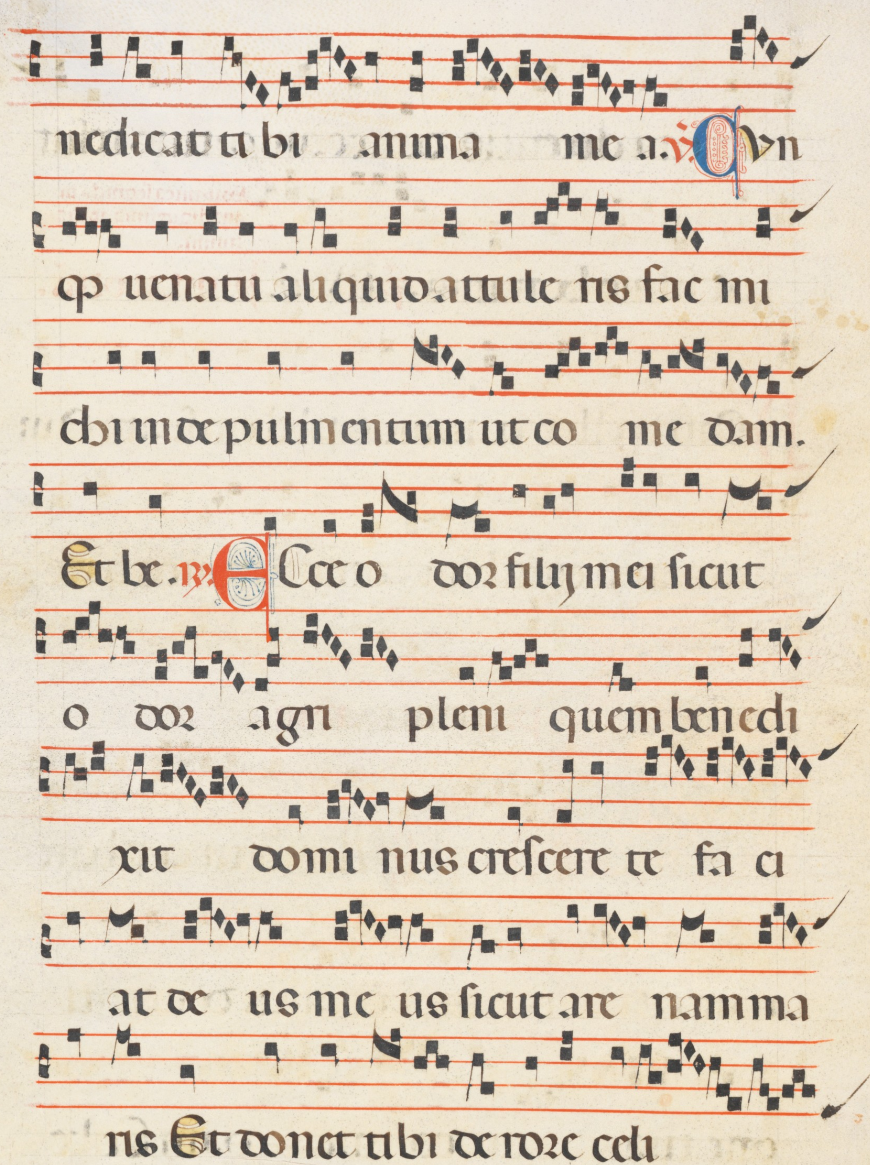 nedicat tibi anima mea. V. Cvn
qp venatu aliquid attuleris fac mi
chi inde pulmentum ut comedam.
Et be. R. ECce odor filij mei sicut
odor agri pleni quem benedi
xit dominus crescere te faci
at deus meus sicut arenam ma
ris Et donet tibi de rore celi